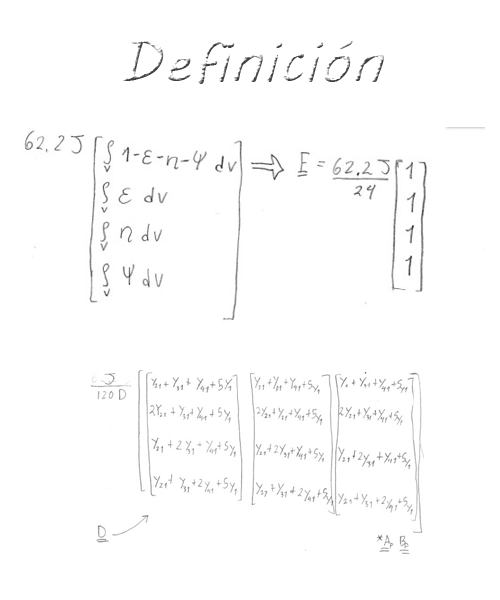 Definición
62.2 J [ ∫v 1-ε-η-ψ dv ] ⇒ E = 62.2 J / 24 [ 1
∫v ε dv 1
∫v η dv 1
∫v ψ dv 1 ]
J / 120 D
y21 + y31 + y41 + 5y1 y21 + y31 + y41 + 5y1 + y31 + y41 + 5y1
2y21 + y31 + y41 + 5y1 2y21 + y31 + y41 + 5y1 2y21 + y31 + y41 + 5y1
y21 + 2y31 + y41 + 5y1 y21 + 2y31 + y41 + 5y1 y21 + 2y31 + y41 + 5y1
y21 + y31 + 2y41 + 5y1 y21 + y31 + 2y41 + 5y1 y21 + y31 + 2y41 + 5y1
D *A, B